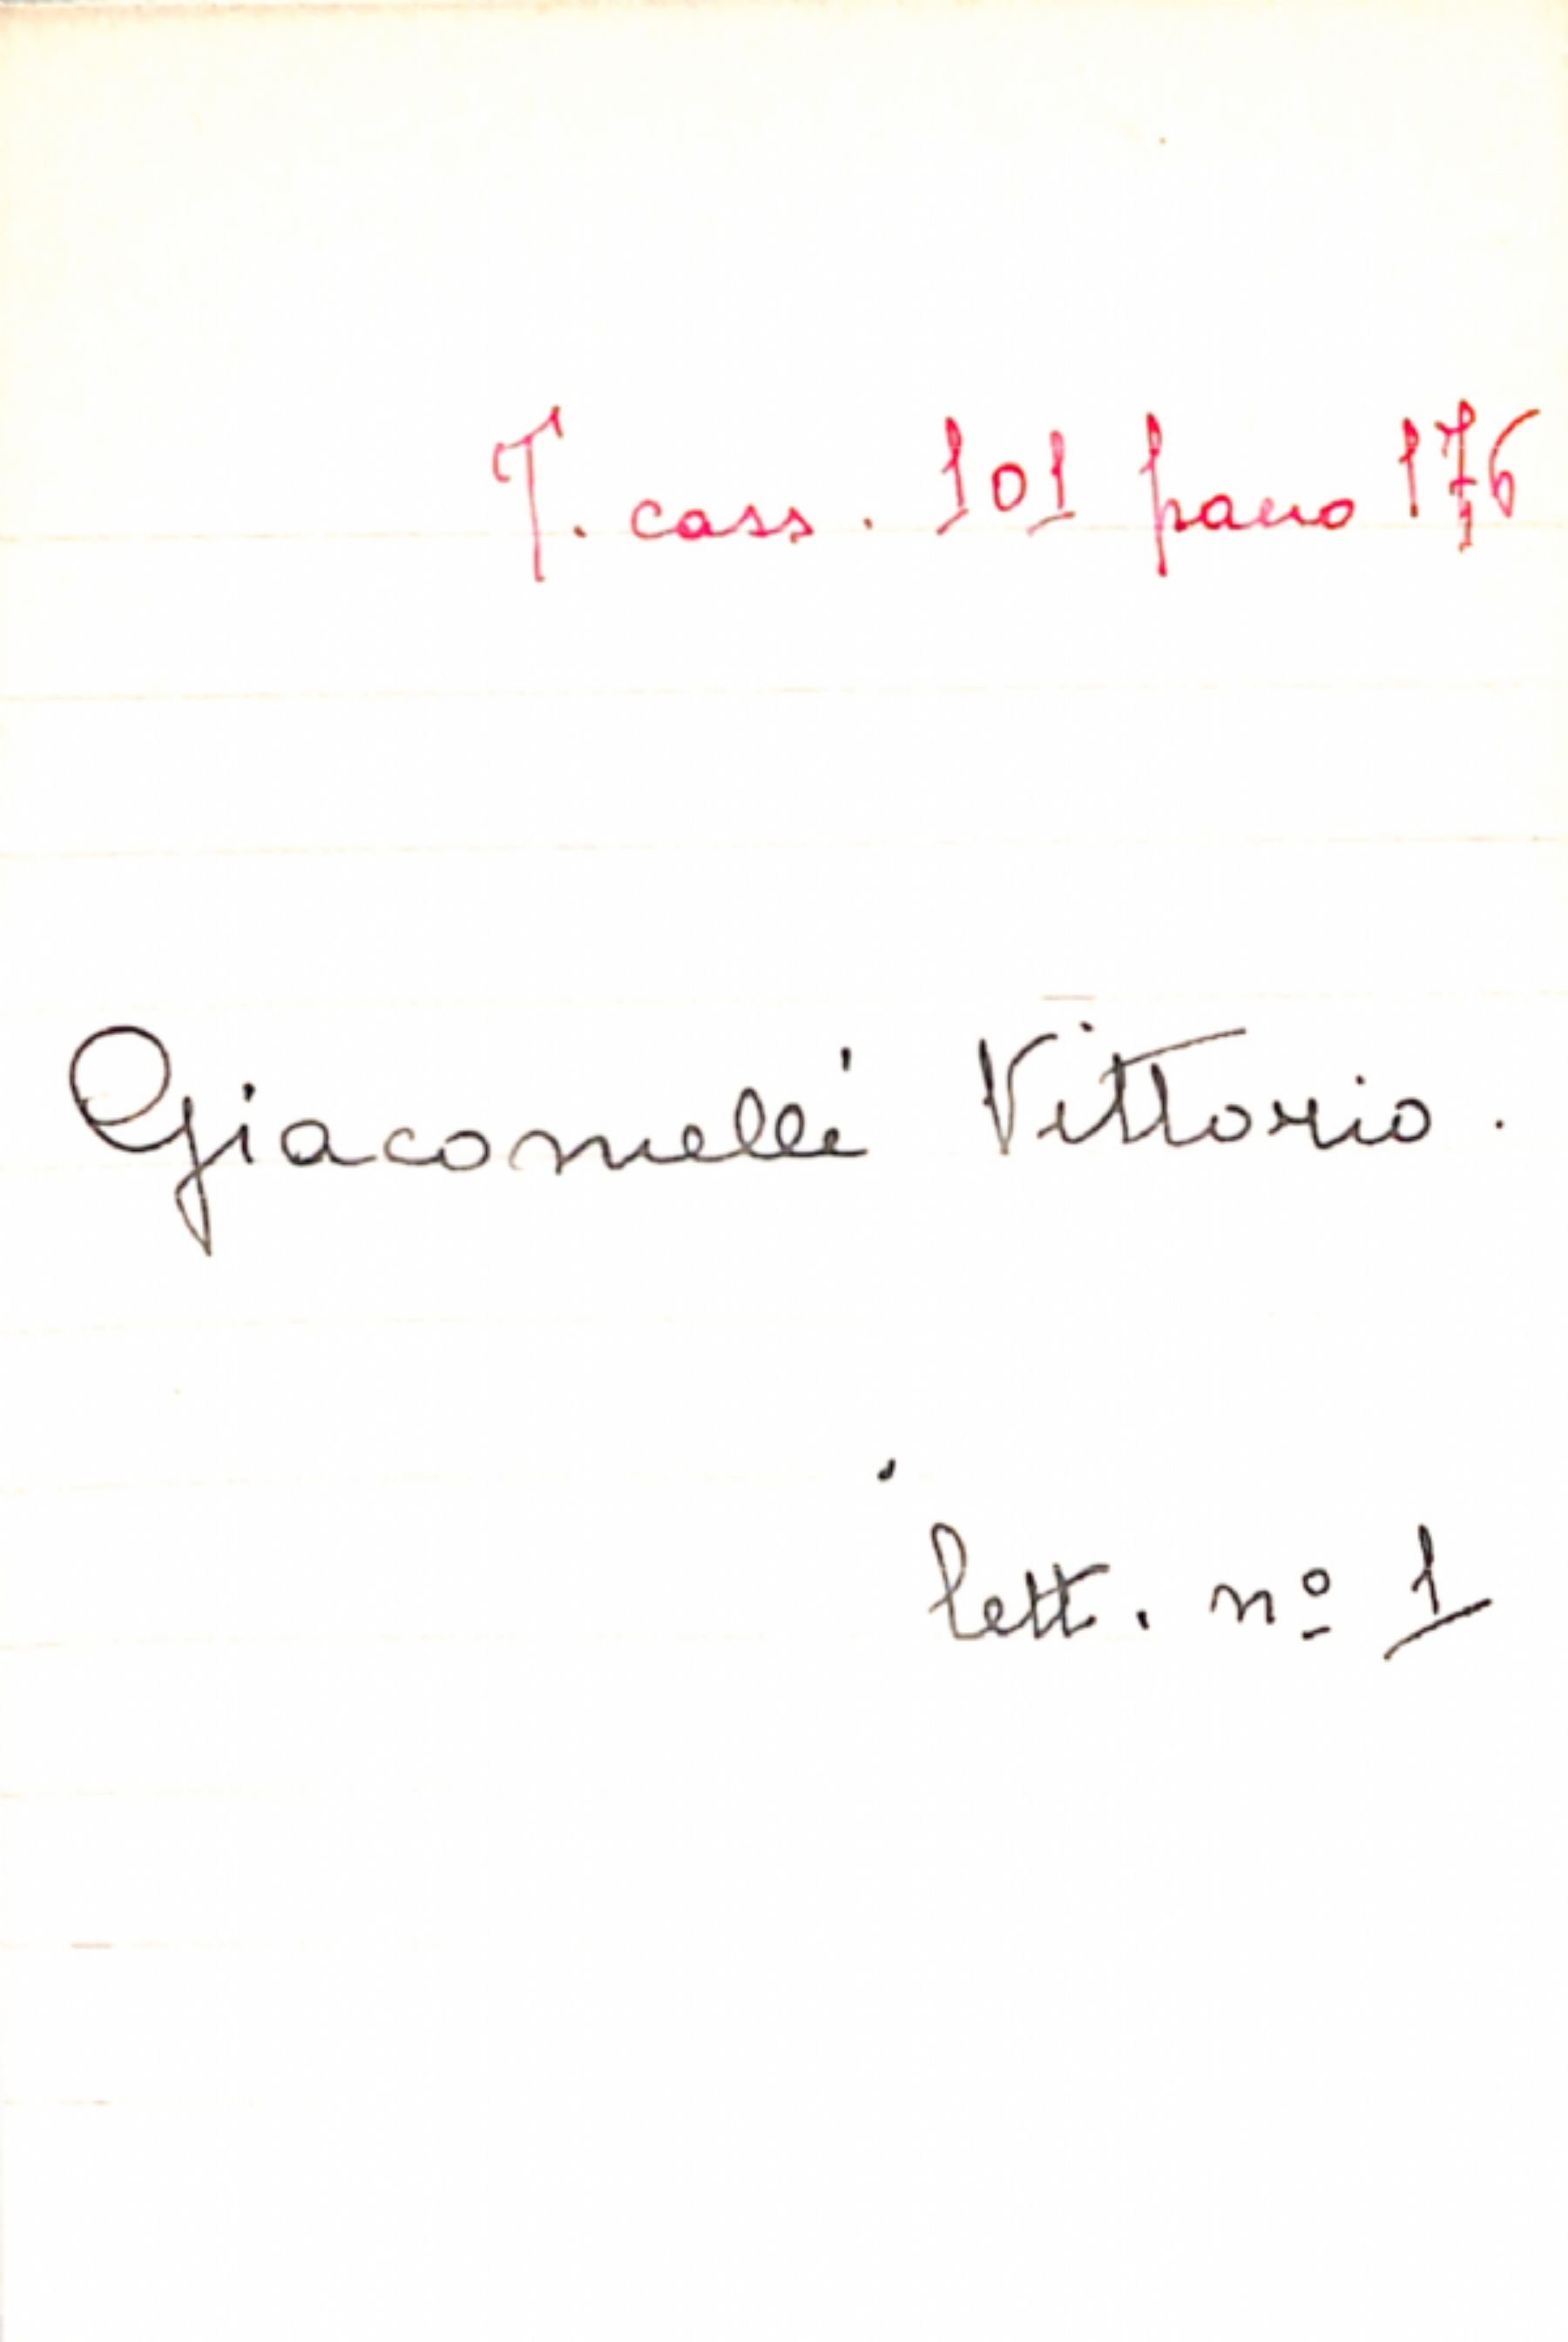 T. cass. 101 pacco 176
Giacomelli Vittorio.
lett. nº 1